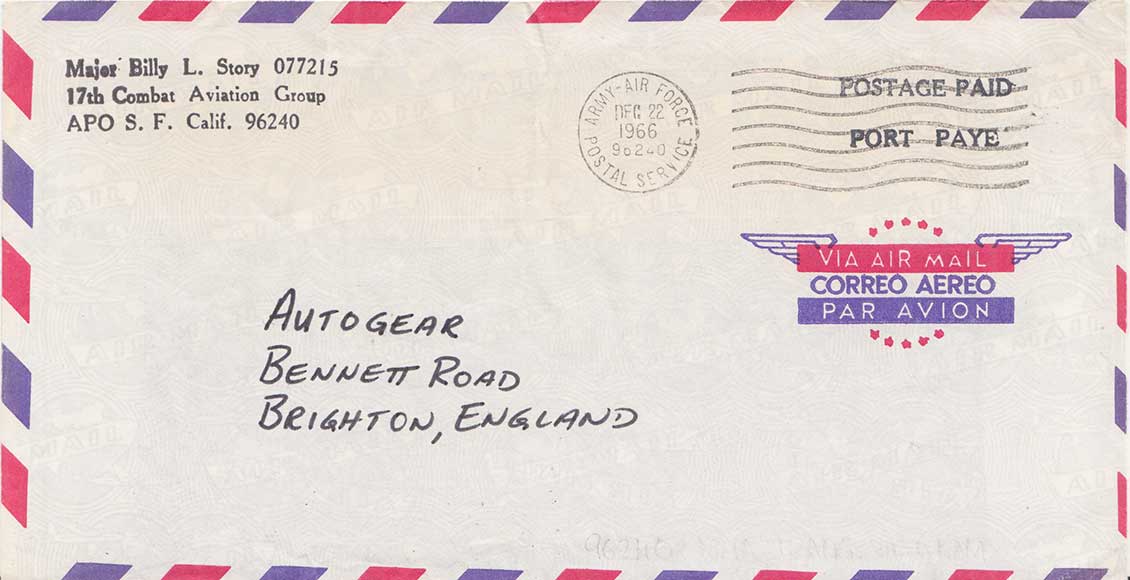 Major Billy L. Story 077215
17th Combat Aviation Group
APO S. F. Calif. 96240
ARMY-AIR FORCE
DEC 22
1966
96240
POSTAL SERVICE
POSTAGE PAID
PORT PAYE
VIA AIR MAIL
CORREO AEREO
PAR AVION
AUTOGEAR
BENNETT ROAD
BRIGHTON, ENGLAND